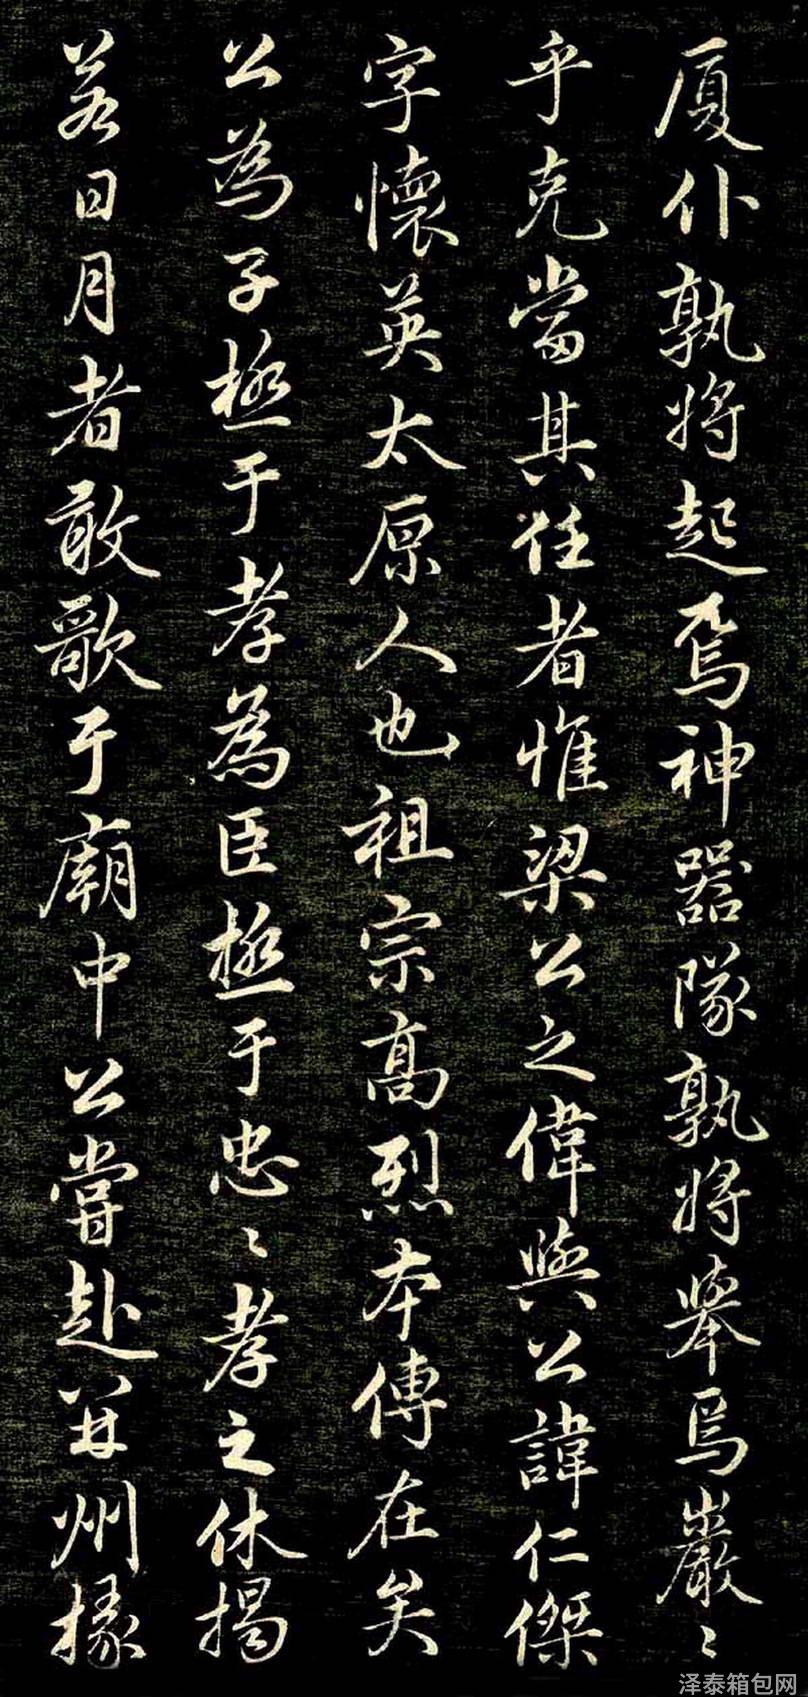 厦仆孰將起焉神器隊孰將舉焉巖〻
乎克當其任者惟梁公之偉與公諱仁傑
字懷英太原人也祖宗高烈本傳在矣
公為子極于孝為臣極于忠〻孝之休揭
若日月者敢歌于廟中公嘗赴并州掾
泽泰箱包网